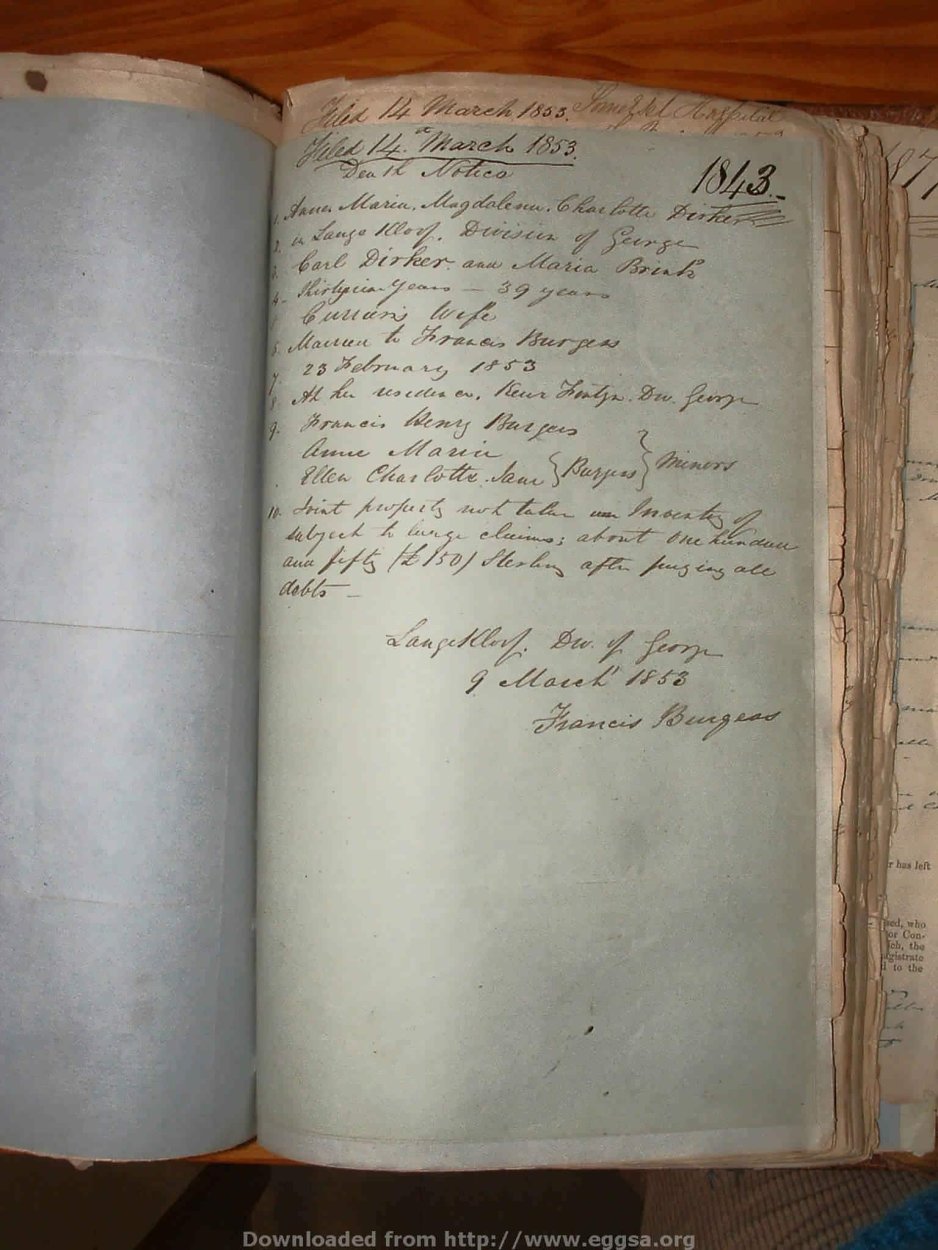 Filed 14 March 1853. Hospital
Filed 14 March 1853.
Death Notice
1843.
1. Anna Maria Magdalena Charlotte Dirker
2. in Lange Kloof. Division of George
3. Carl Dirker and Maria Brink
4. years — 39 years
5 wife
6. Married to Francis Burgess
7. 23 February 1853
8. At her residence, Div. George
9. Francis Henry Burgess
Anne Maria
Ellen Charlotte Jane } Burgess } Minors
10. Joint property not taken an Inventory of
subject to large claims; about one hundred
and fifty (£150) Sterling after paying all
debts —
Lange Kloof. Div. of George
9 March 1853
Francis Burgess
r has left
sed, who
or Con-
ich, the
agistrate
d to the
Downloaded from http://www.eggsa.org